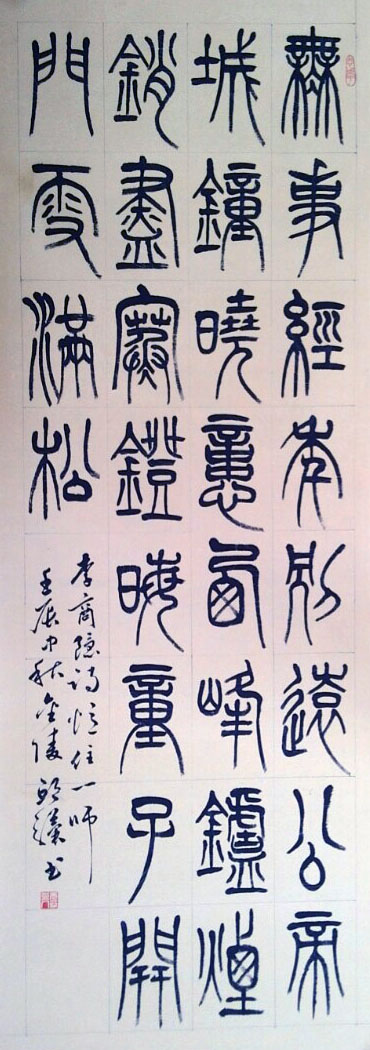 無事經年別遠公帝
城鐘曉憶西峰鑪煙
銷盡寒鐙晦童子開
門雪滿松
李商隐詩憶住一師
壬辰中秋金陵书